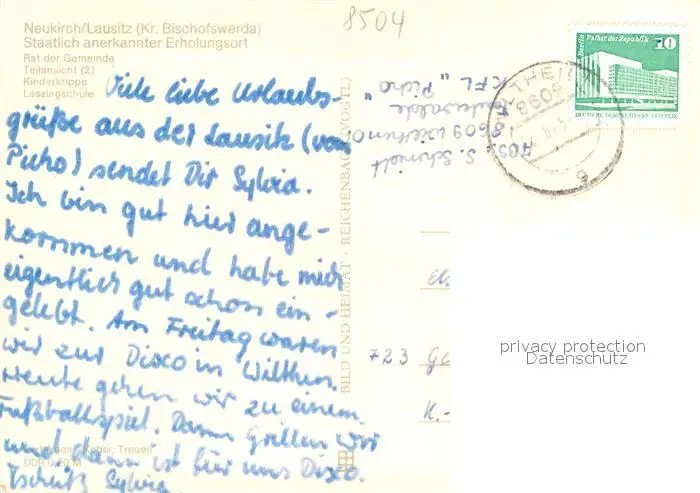 8504
Neukirch/Lausitz (Kr. Bischofswerda)
Staatlich anerkannter Erholungsort
Rat der Gemeinde
Teilansicht (2)
Kinderkrippe
Lessingschule
Viele liebe Urlaubs-
grüße aus der Lausitz (vom
Picho) sendet Dir Sylvia.
Ich bin gut hier ange-
kommen und habe mich
eigentlich gut schon ein-
gelebt. Am Freitag waren
wir zur Disco in Wilthen.
Heute gehen wir zu einem
Fußballspiel. Dann Grillen wir
und dann ist für uns Disco.
Tschüß Sylvia
DDR 0,20 M
BILD UND HEIMAT · REICHENBACH (VOGTL)
Abs.: S. Schmidt
8609 Wilthen
KFL „Picho"
Berlin Palast der Republik 10
DEUTSCHE DEMOKRATISCHE REPUBLIK
8609
6
723 Ge
K.-
privacy protection
Datenschutz